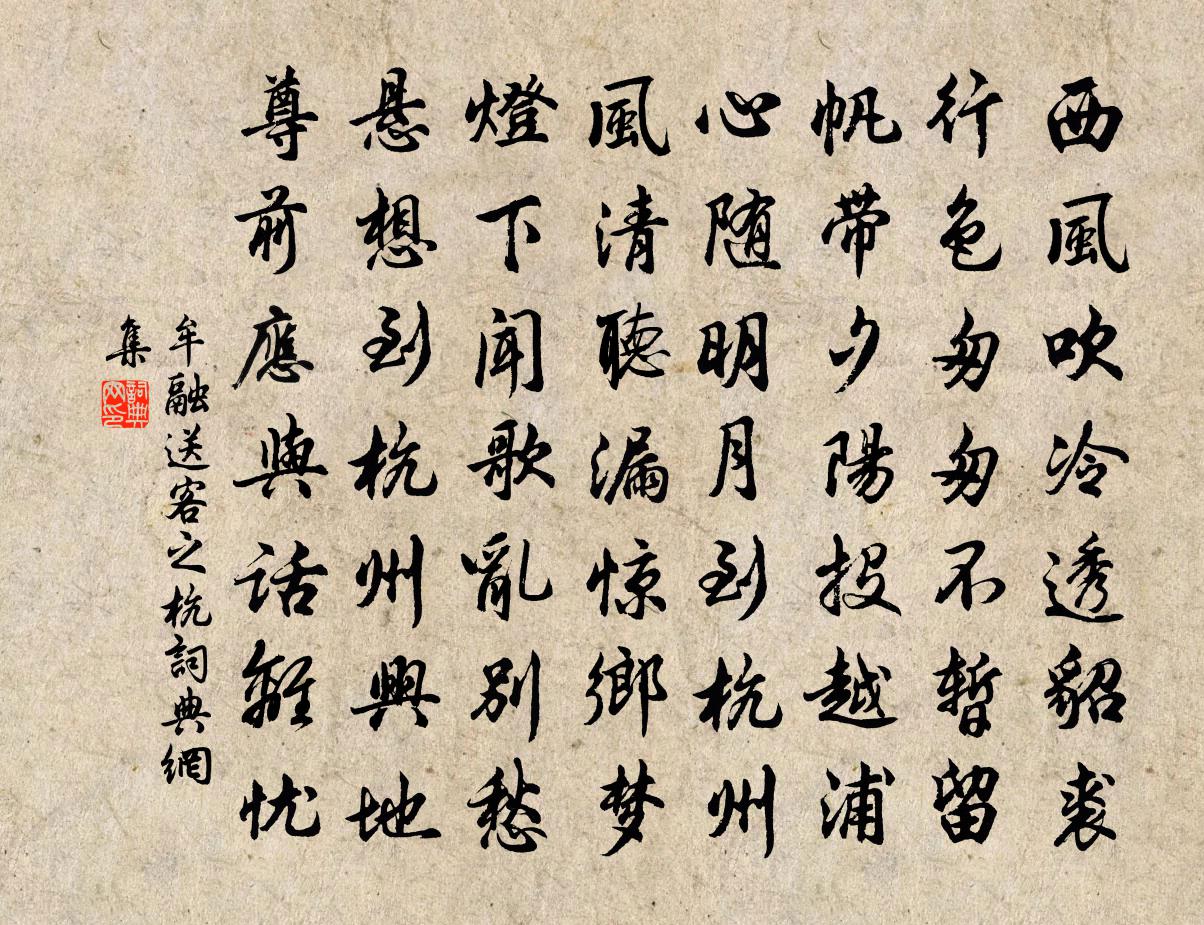 西風吹冷透貂裘
行色匆匆不暫留
帆带夕陽投越浦
心随明月到杭州
風清聽漏惊鄉梦
燈下聞歌亂别愁
悬想到杭州興地
尊前應與話離忧
牟融送客之杭詞典網
集
詞典网印